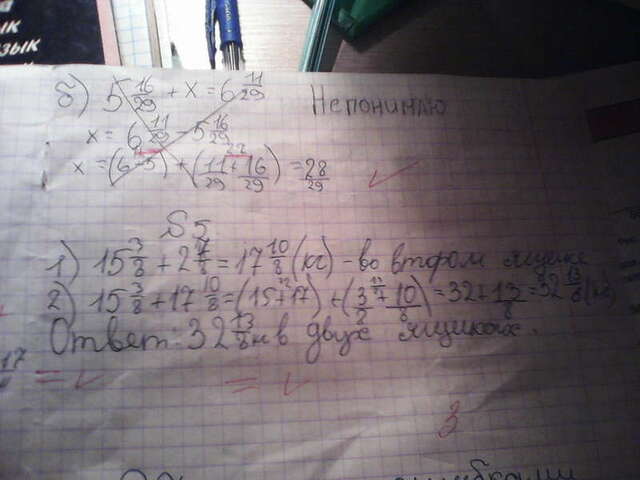 ык
ЗЫК
б) 5 16/29 + x = 6 11/29 Непонимаю
x = 6 11/29 - 5 16/29
x = (6-5) + (11/29 + 16/29) = 28/29
№5
1) 15 3/8 + 2 7/8 = 17 10/8 (кг) - во втором ящике
2) 15 3/8 + 17 10/8 = (15+17) + (3/8 + 10/8) = 32 + 13/8 = 32 13/8 (кг)
Ответ: 32 13/8 кг в двух ящиках.
17
3